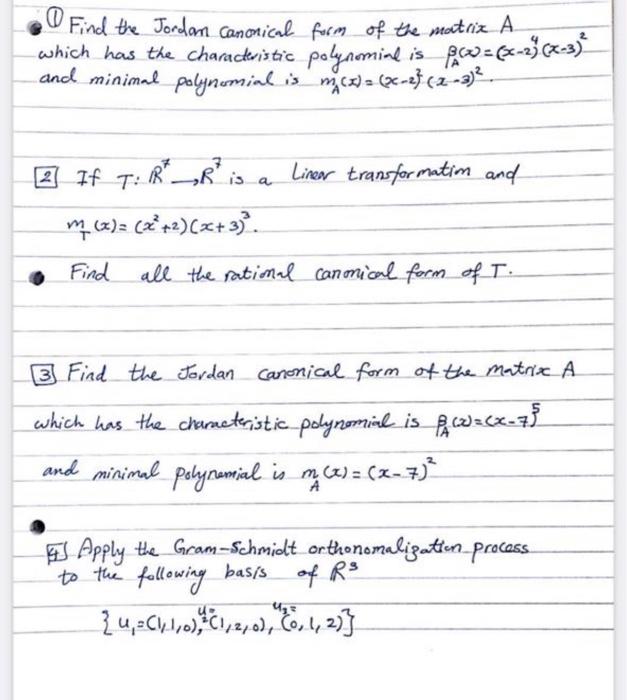 ① Find the Jordan canonical form of the matrix A
which has the characteristic polynomial is P_A(x)=(x-2)^4(x-3)^2
and minimal polynomial is m_A(x)=(x-2)^2(x-3)^2.
[2] If T: R^7→R^7 is a linear transformation and
m_T(x)=(x^2+2)(x+3)^3.
• Find all the rational canonical form of T.
[3] Find the Jordan canonical form of the matrix A
which has the characteristic polynomial is P_A(x)=(x-7)^5
and minimal polynomial is m_A(x)=(x-7)^2
[4] Apply the Gram-Schmidt orthonomalization process
to the following basis of R^3
{u_1=(1,1,0), u_2=(1,2,0), u_3=(0,1,2)}